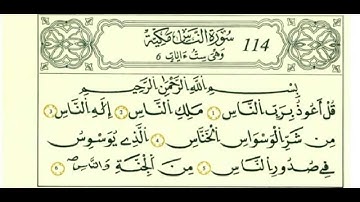 سُورَةُ النَّاسِ مَكِّيَّة 114
وَهِيَ سِتُّ ءَايَاتٍ 6
بِسْمِ اللَّهِ الرَّحْمَٰنِ الرَّحِيمِ
قُلْ أَعُوذُ بِرَبِّ النَّاسِ ١ مَلِكِ النَّاسِ ٢ إِلَٰهِ النَّاسِ ٣
مِن شَرِّ الْوَسْوَاسِ الْخَنَّاسِ ٤ الَّذِي يُوَسْوِسُ
فِي صُدُورِ النَّاسِ ٥ مِنَ الْجِنَّةِ وَالنَّاسِ ٦